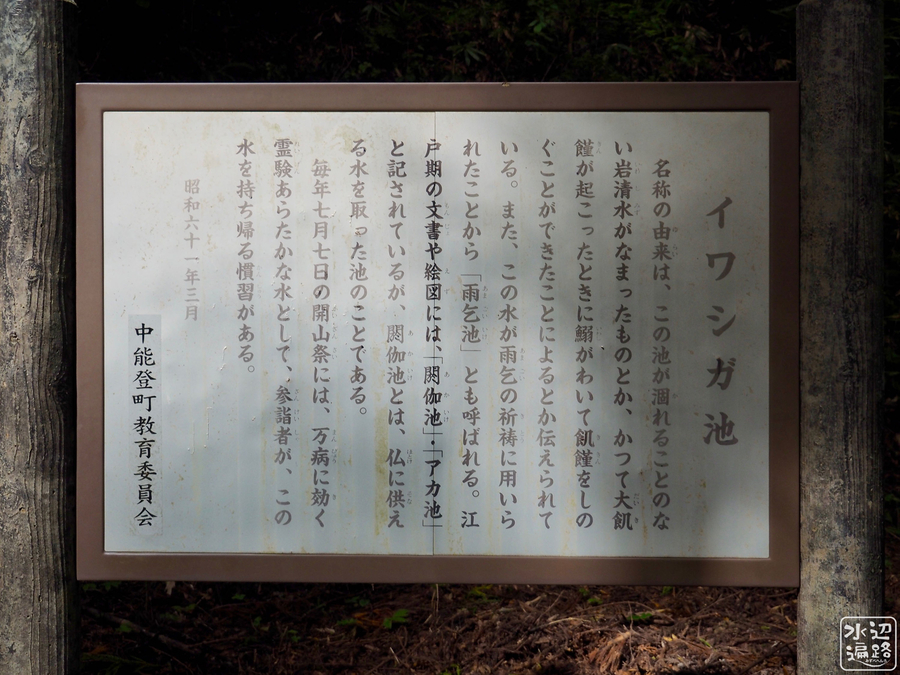 イワシガ池
名称の由来は、この池が涸れることのな
い岩清水がなまったものとか、かつて大飢
饉が起こったときに鰯がわいて飢饉をしの
ぐことができたことによるとか伝えられて
いる。また、この水が雨乞の祈祷に用いら
れたことから「雨乞池」とも呼ばれる。江
戸期の文書や絵図には、「閼伽池」・「アカ池」
と記されているが、閼伽池とは、仏に供え
る水を取った池のことである。
毎年七月七日の開山祭には、万病に効く
霊験あらたかな水として、参詣者が、この
水を持ち帰る慣習がある。
昭和六十一年三月
中能登町教育委員会
水辺遍路